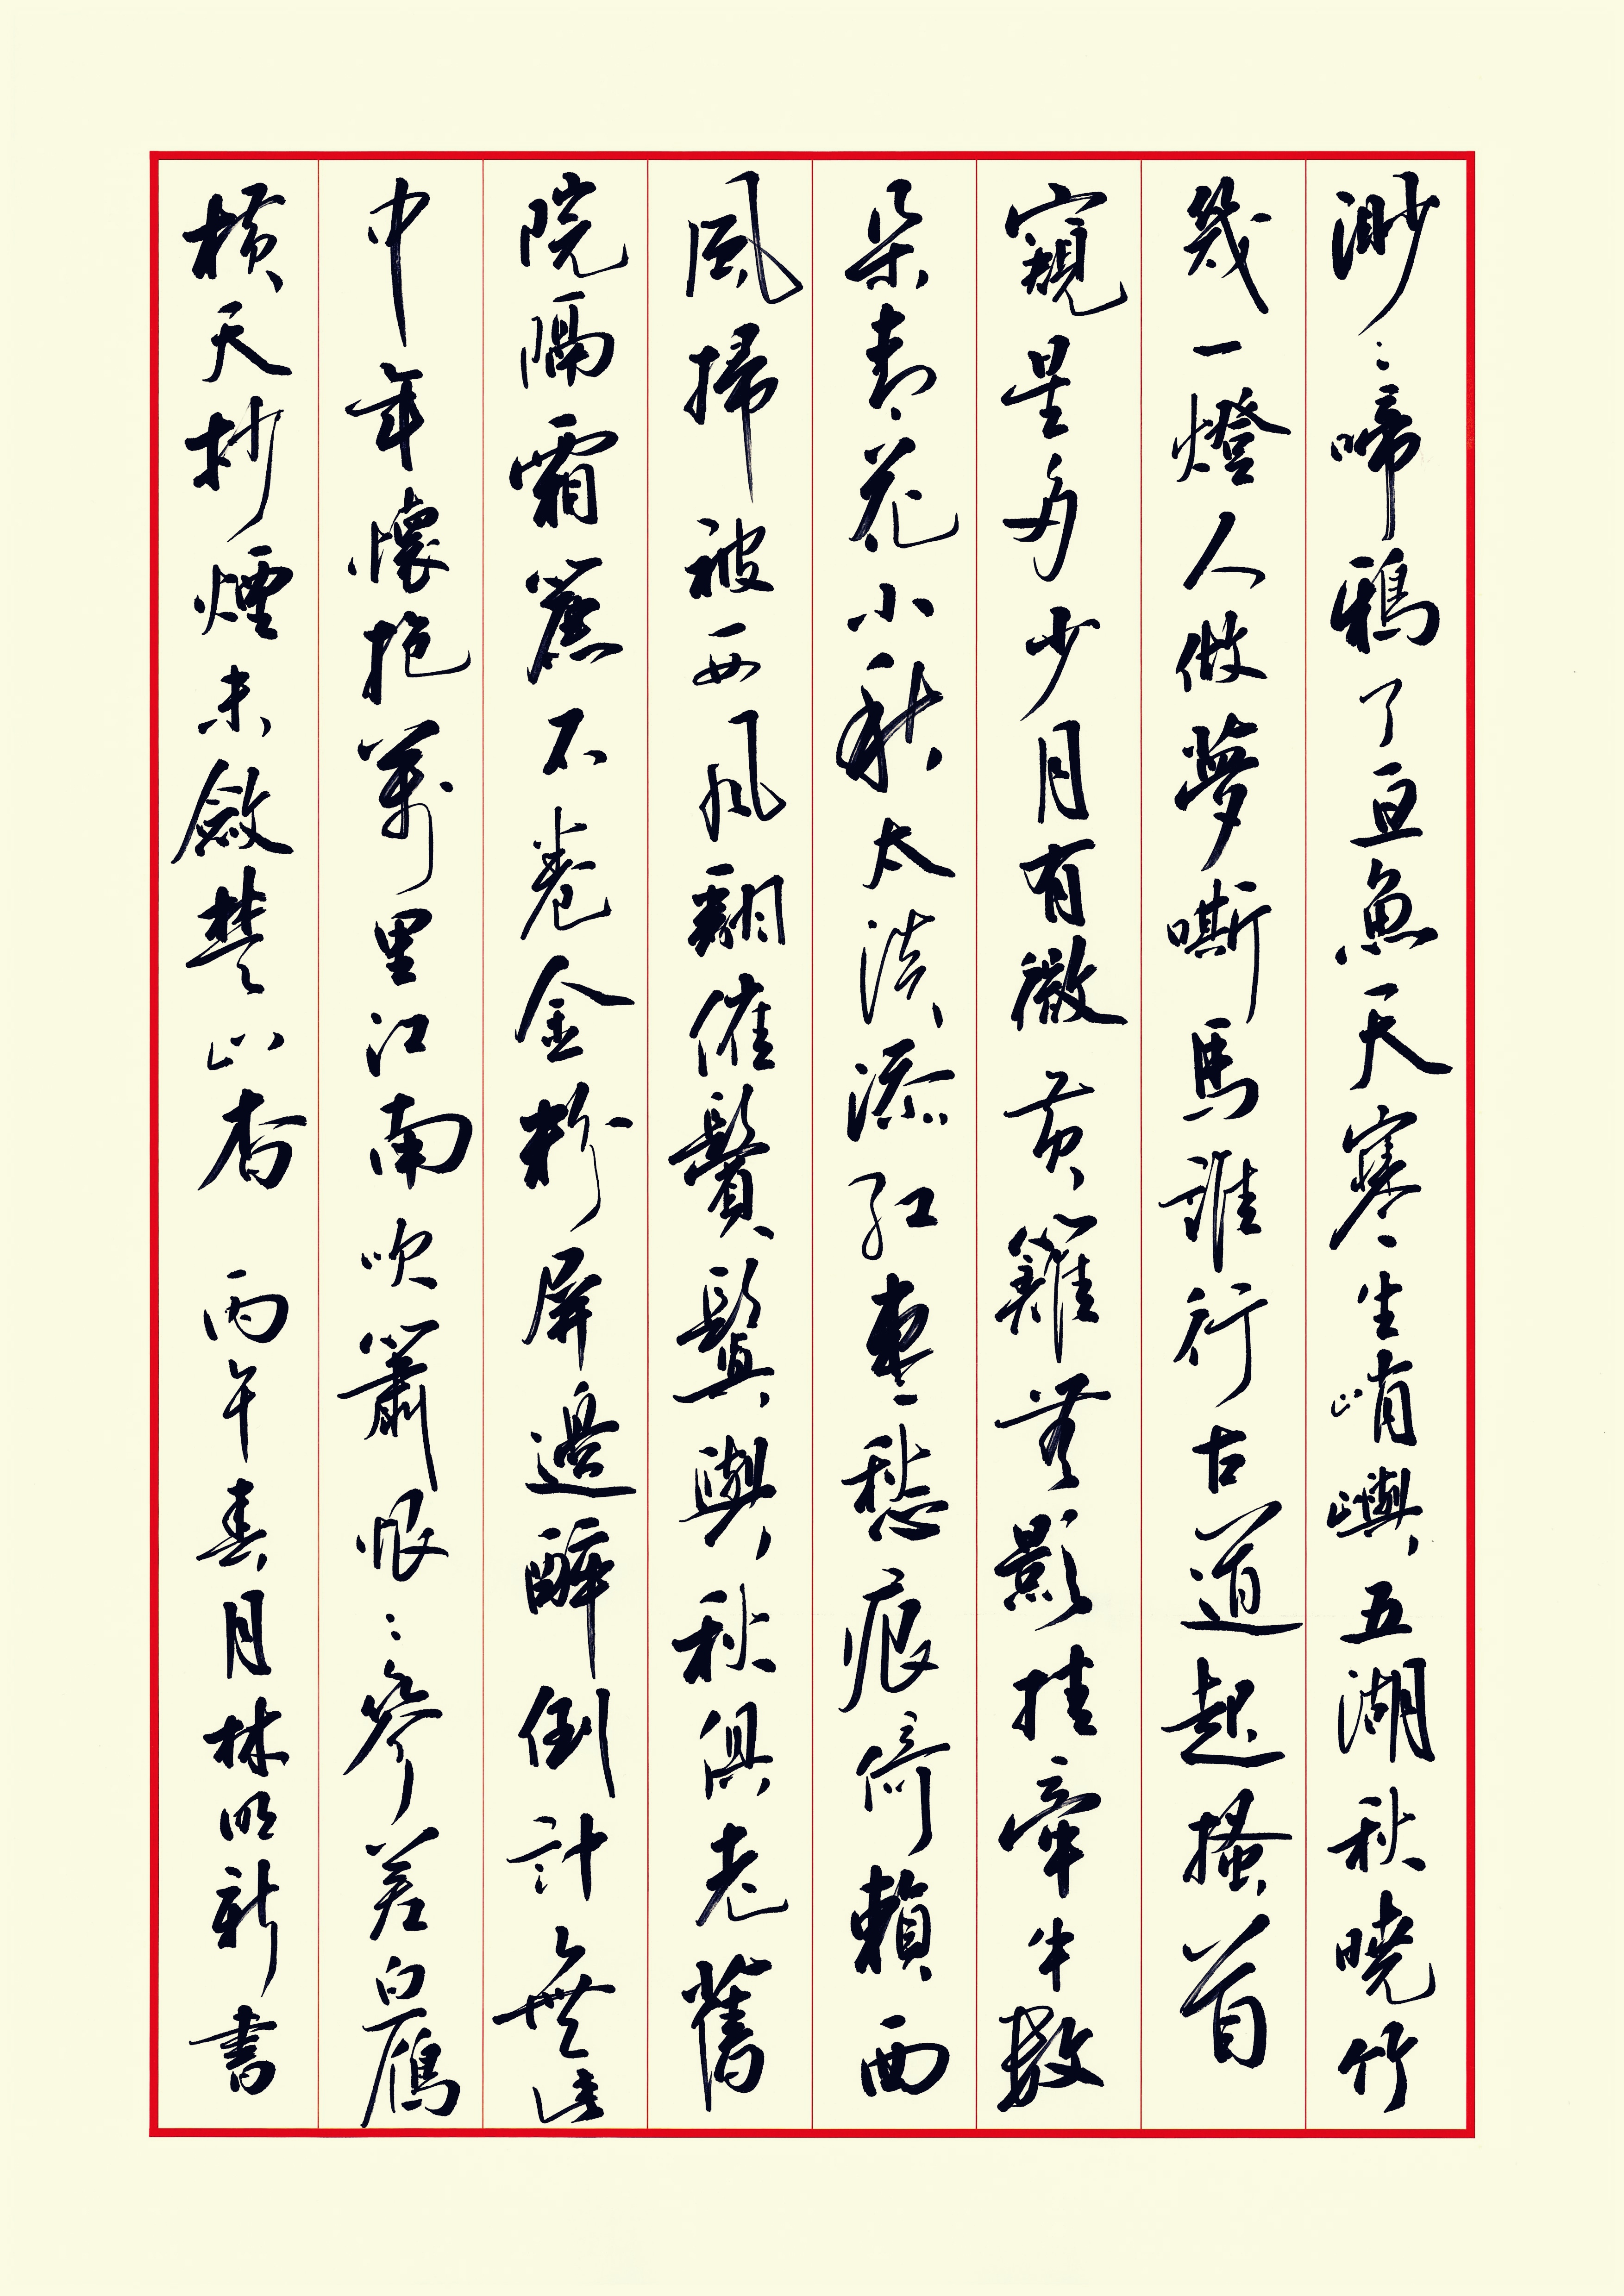 渺〻啼鴉了亘魚天寒生峭嶼五湖秋曉竹
幾一燈人做夢嘶馬誰行古道起搔首
窺星多少月有微黄籬無影挂牽牛數
朵青花小秋太淡添紅棗愁痕倚賴西
風掃被西風翻催鬢鬒與秋俱老舊
院隔霜簾不卷金粉屏邊醉倒計無此
中年懷抱萬里江南吹簫恨〻參差白鴈
横天抄煙未斂楚山杳 丙午春月林明新書